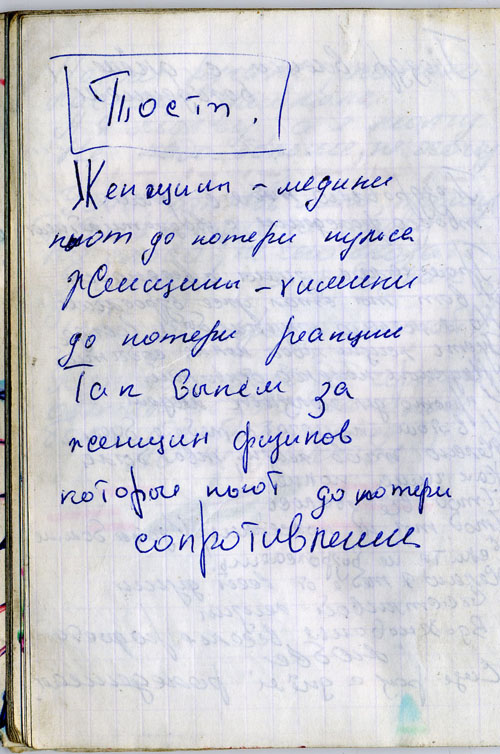 Тост.
Женщины - медики
пьют до потери пульса
Женщины - химики
до потери реакции
Так выпем за
женщин физиков
которые пьют до потери
сопротивления